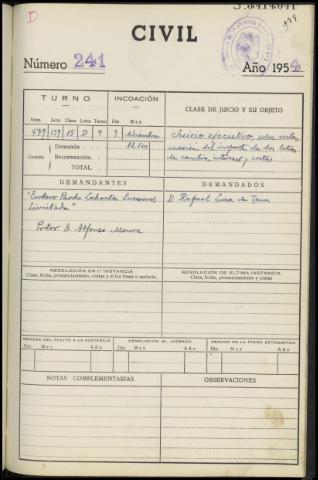 D
CIVIL
Número 241
Año 1954
TURNO
INCOACIÓN
CLASE DE JUICIO Y SU OBJETO
Núm. Acta Clase Letra Turno Día Mes
479 157 15 D 9 9 diciembre
Cuantía
Demanda 12.500
Reconvención
TOTAL
Juicio ejecutivo, sobre reclamación del importe de dos letras
de cambio, intereses y costas.
DEMANDANTES
DEMANDADOS
"Gustavo Pardo Labarta Sucesores
Limitada"
Prdor. D. Alfonso
D. Rafael de
RESOLUCIÓN EN 1ª INSTANCIA
Clase, fecha, pronunciamiento, costas y si fue firme o apelada.
RESOLUCIÓN DE ÚLTIMA INSTANCIA
Clase, fecha, pronunciamiento y costas
REMESA DEL PLEITO A LA AUDIENCIA
DEVOLUCIÓN AL JUZGADO
REMESA DE LA FICHA ESTADÍSTICA
Día Mes Año Día Mes Año Día Mes Año
NOTAS COMPLEMENTARIAS
OBSERVACIONES